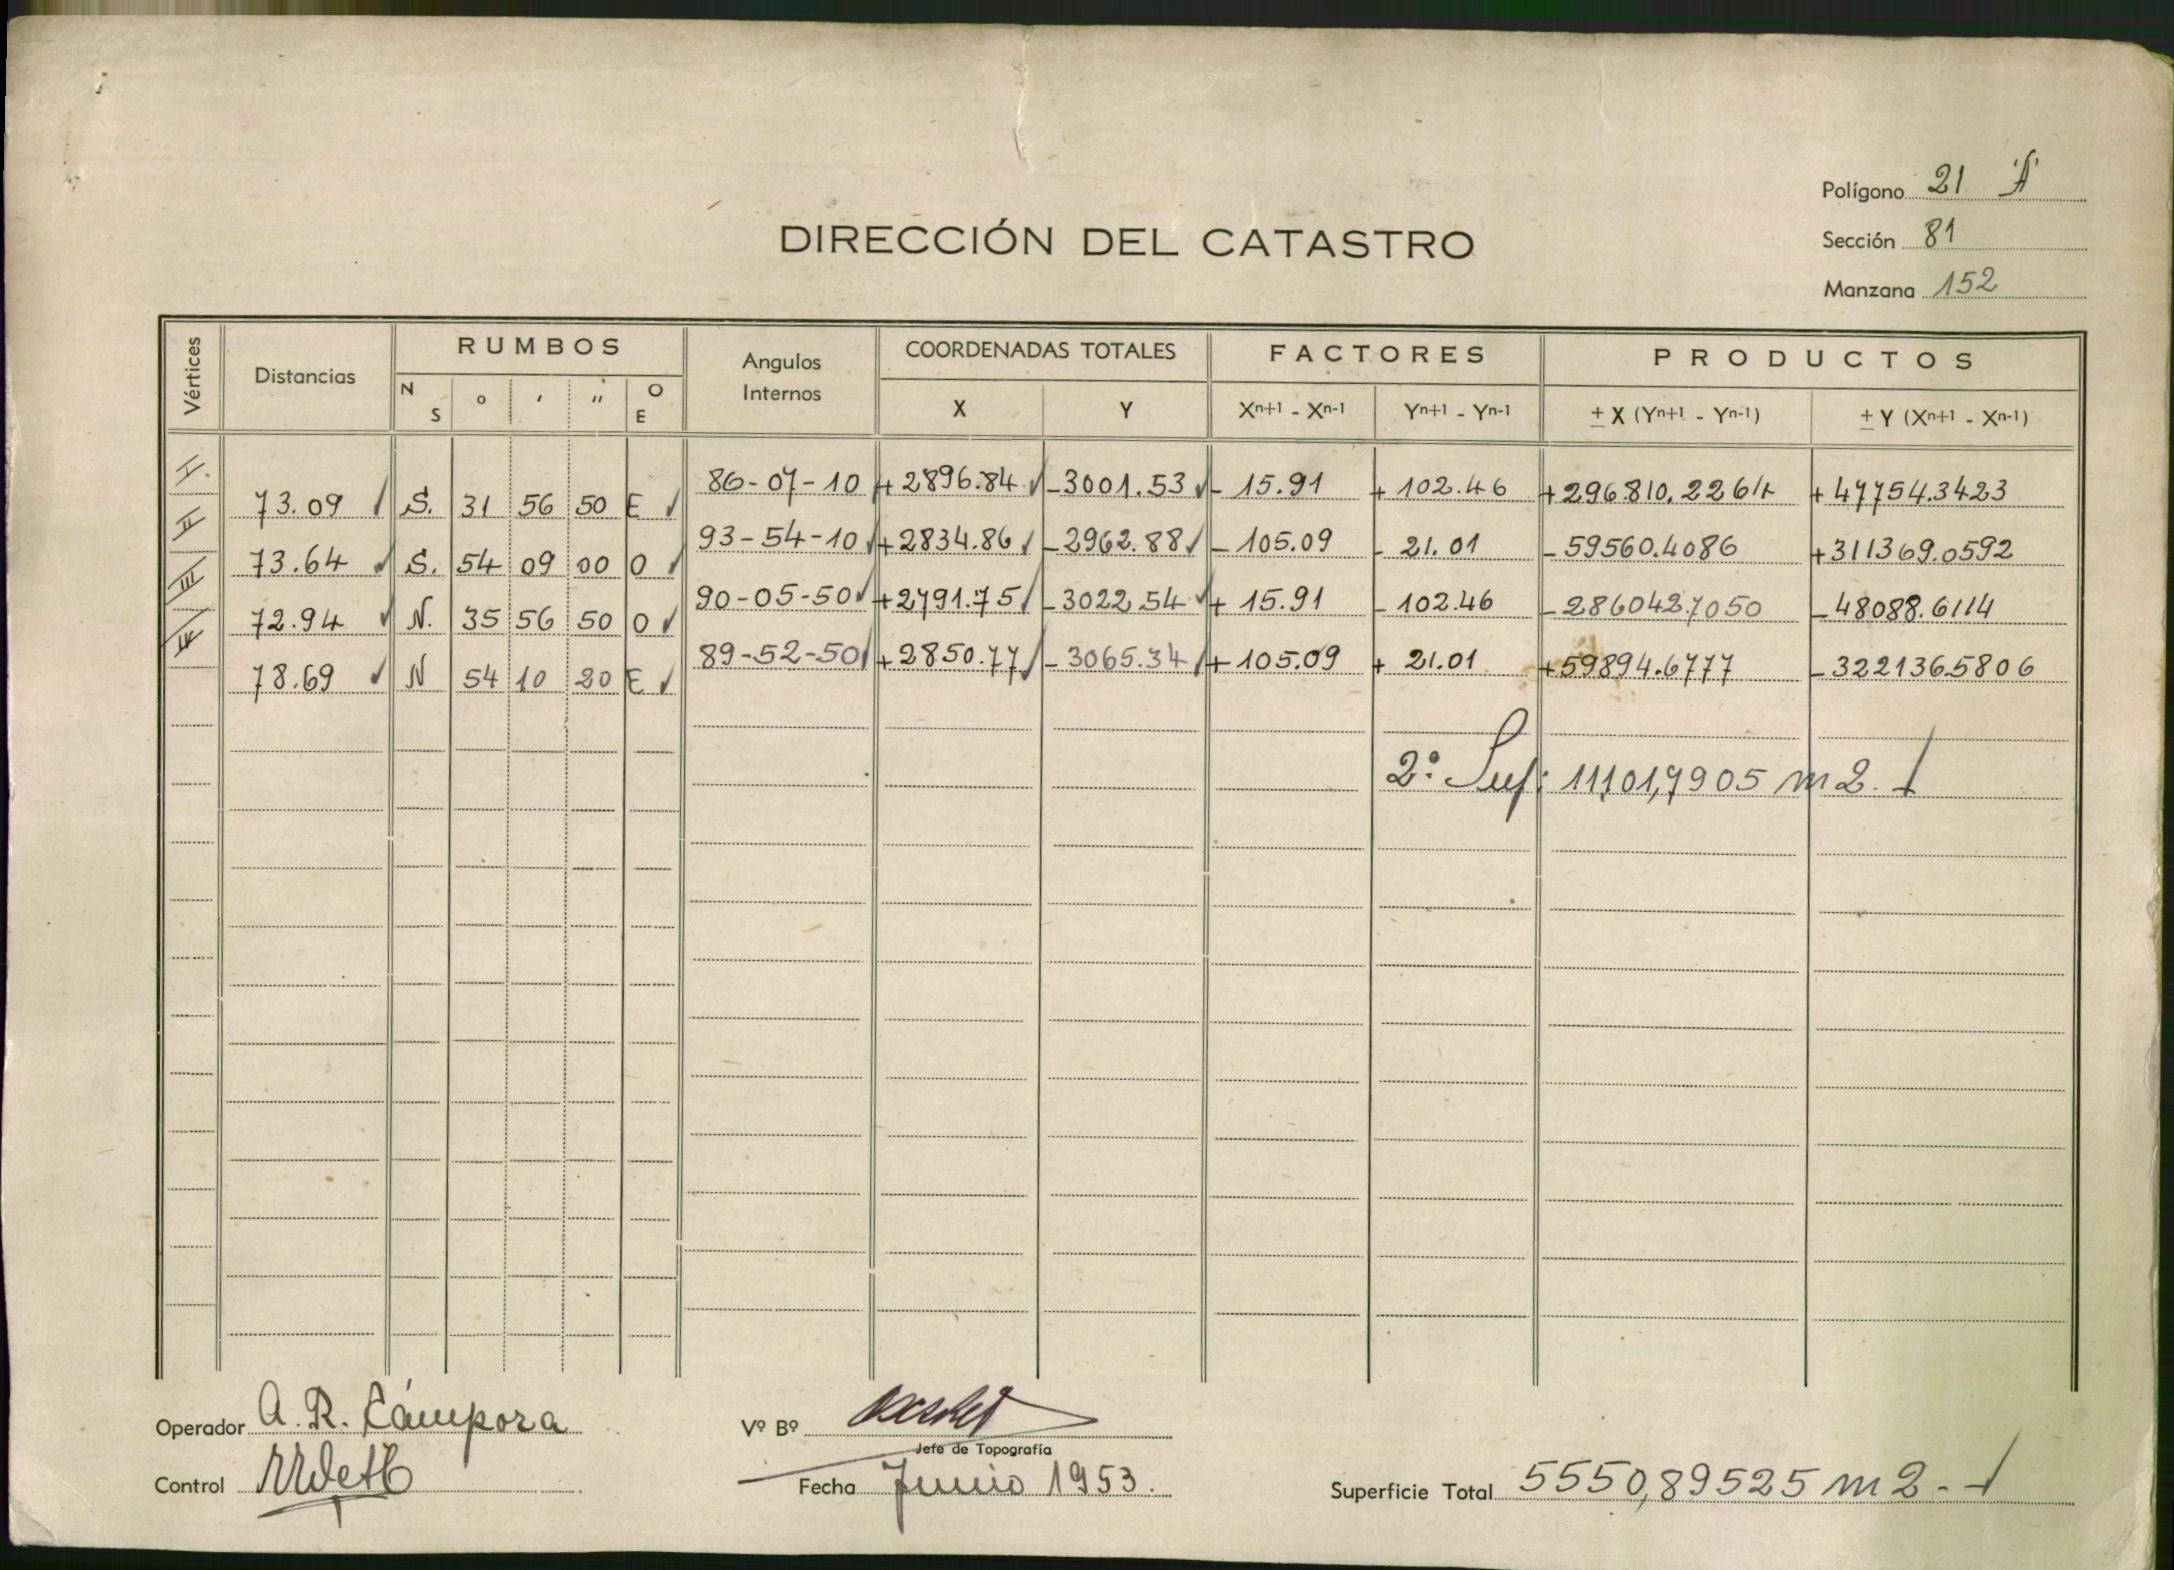 Polígono 21 "A"
Sección 81
Manzana 152
DIRECCIÓN DEL CATASTRO
Vértices Distancias RUMBOS Angulos Internos COORDENADAS TOTALES FACTORES PRODUCTOS
N S ° ' " O E X Y Xn+1 - Xn-1 Yn+1 - Yn-1 ± X (Yn+1 - Yn-1) ± Y (Xn+1 - Xn-1)
I. 86-07-10 +2896.84 -3001.53 - 15.91 + 102.46 +296810.2264 +47754.3423
73.09 S. 31 56 50 E
II 93-54-10 +2834.86 -2962.88 - 105.09 - 21.01 -59560.4086 +311369.0592
73.64 S. 54 09 00 O
III 90-05-50 +2791.75 -3022.54 + 15.91 - 102.46 -286042.7050 -48088.6114
72.94 N. 35 56 50 O
IV 89-52-50 +2850.77 -3065.34 + 105.09 + 21.01 +59894.6777 -322136.5806
78.69 N 54 10 20 E
2º Sup: 11101,7905 m2.
Operador A. R. Cámpora
Vº Bº
Jefe de Topografía
Control
Fecha Junio 1953.
Superficie Total 5550,89525 m2.-